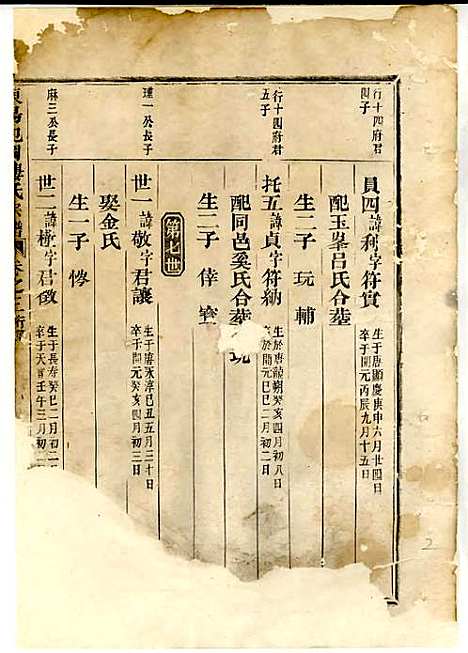 行十四府君
四子
員四諱利字符實
生于唐顯慶庚申六月廿四日
卒于開元丙辰九月十五日
配玉峯呂氏合塟
生二子 玩 輔
行十四府君
五子
托五諱貞字符納
生於唐 朔癸亥四月初八日
卒於開元己巳二月初二日
配同邑奚氏合塟 玩
生二子 倖
第七世
瑾一公長子
世一諱敬字君讓
生于唐 淳 丑五月三十日
卒于開元癸亥四月初三日
娶金氏
生一子
麻三公長子
世二諱 字君徵
生于長壽癸巳二月初二
卒于天寶壬午三月初
東陽 婁氏宗譜 卷之